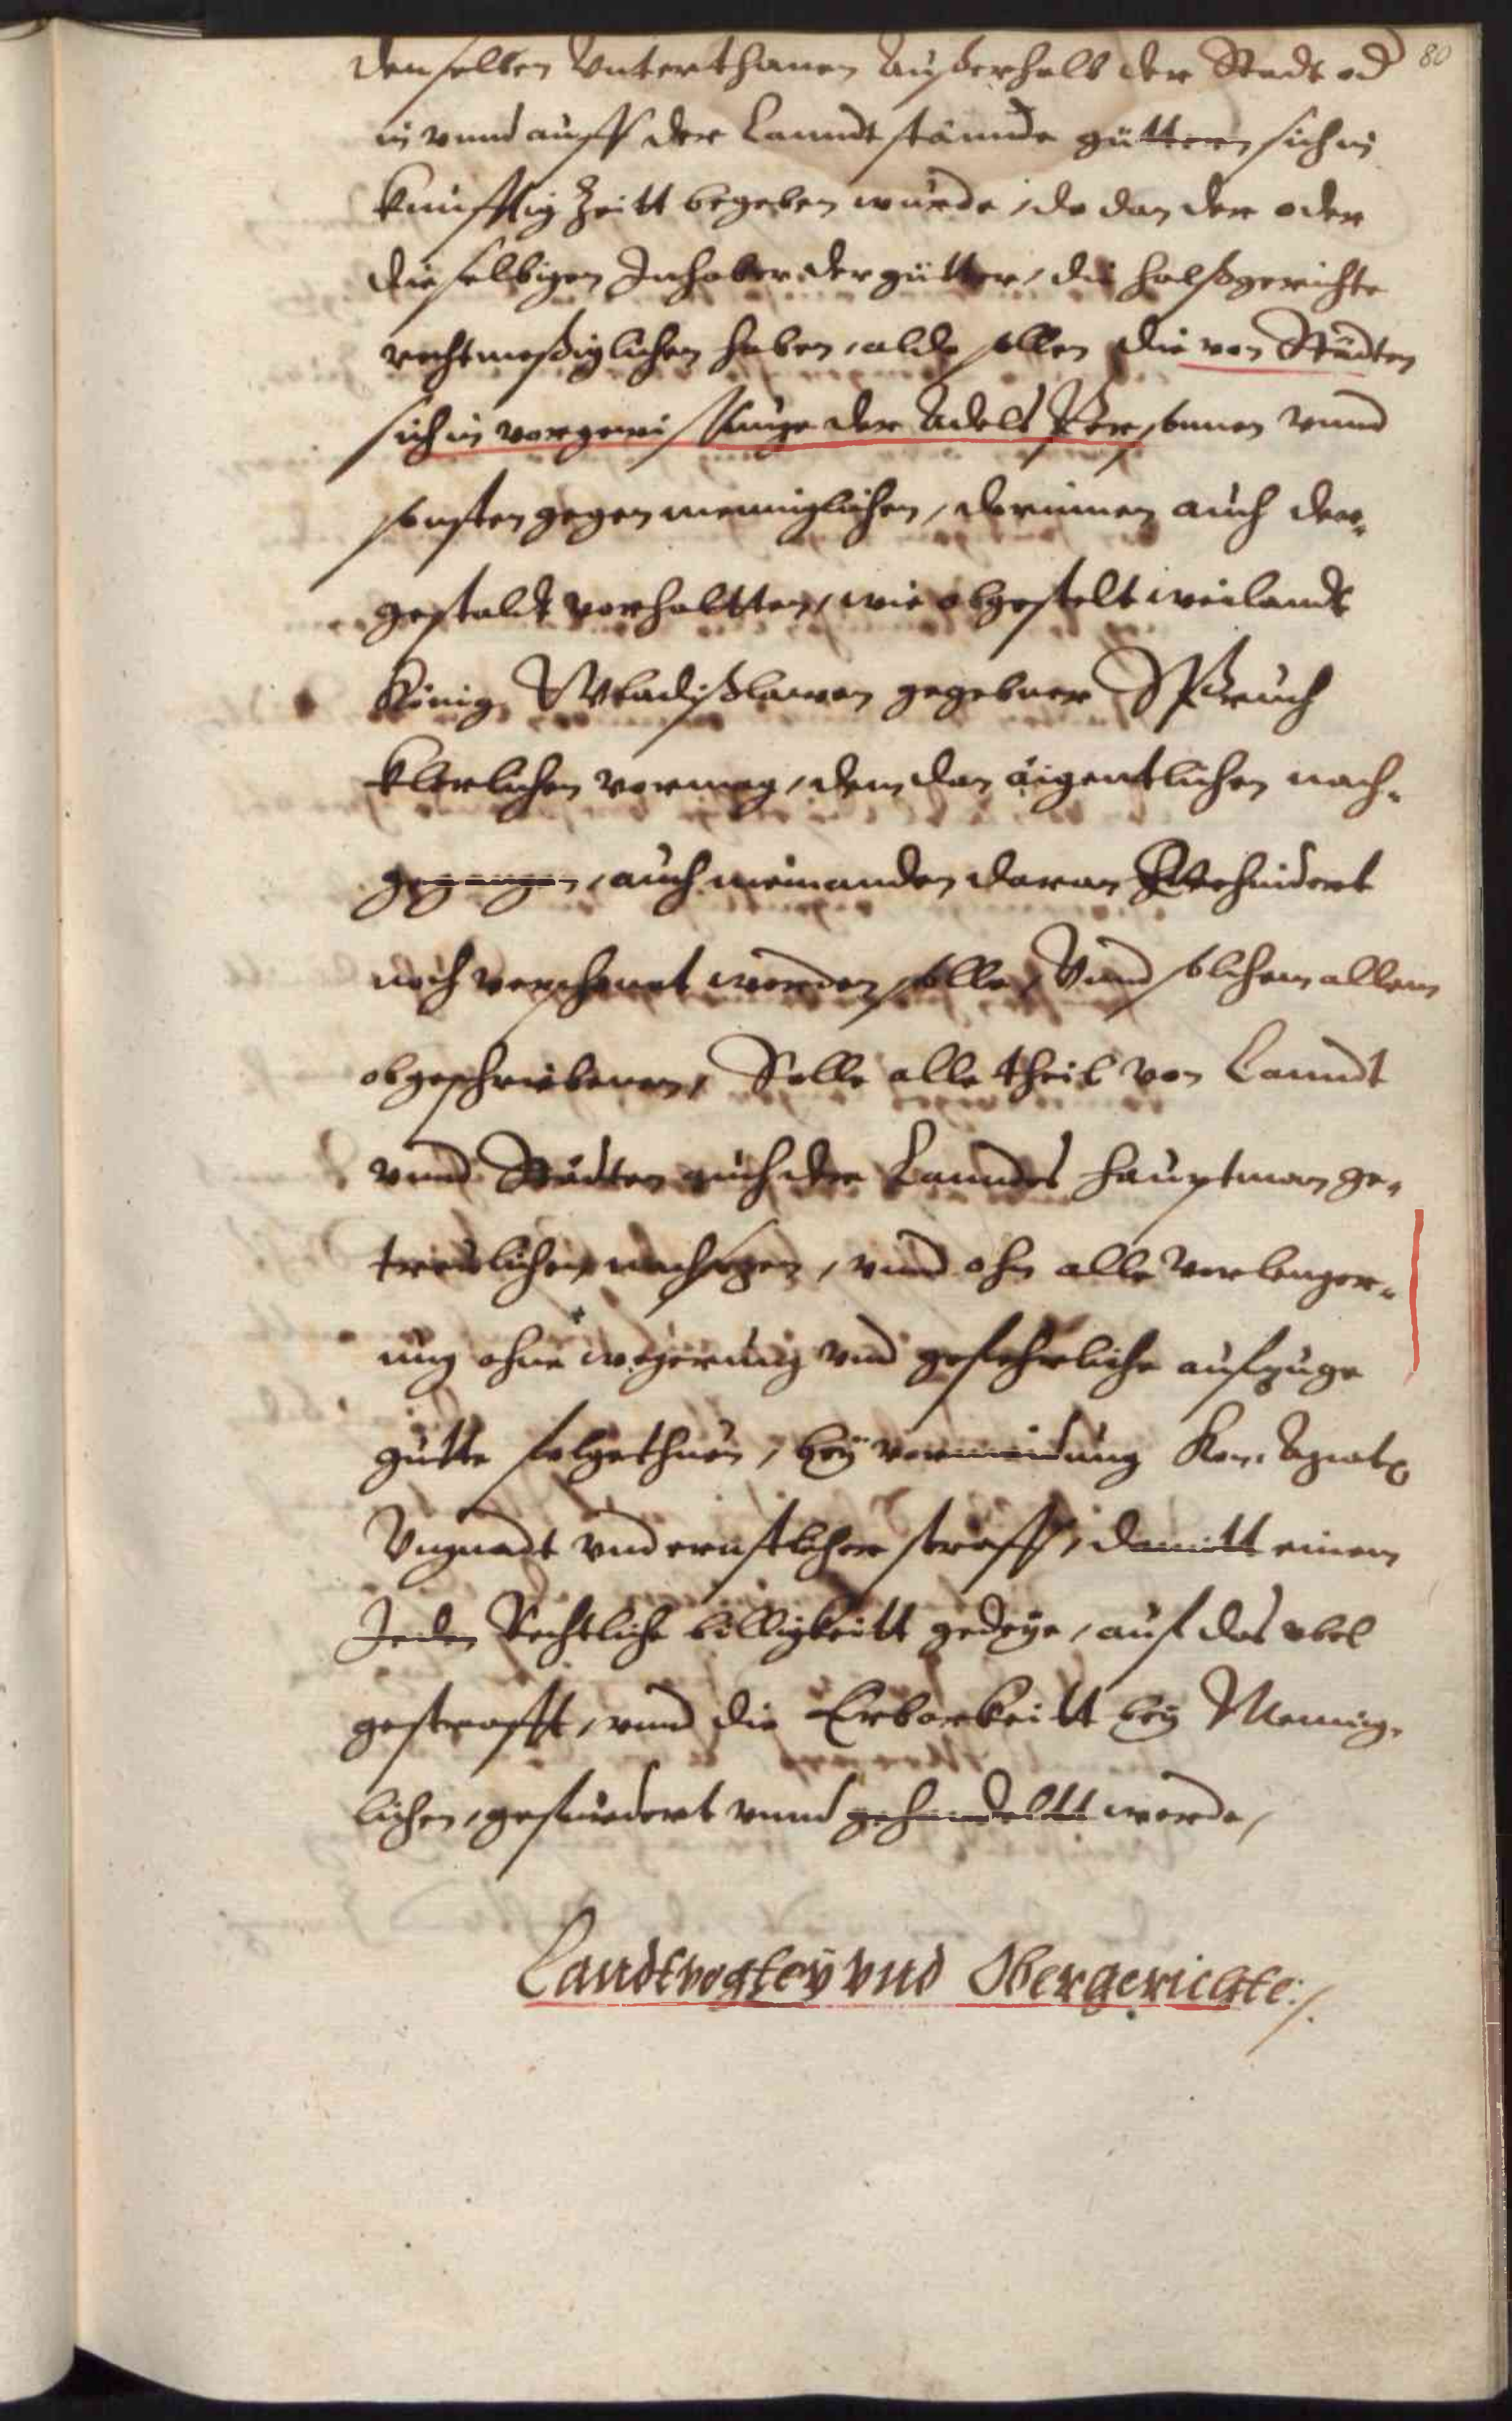 80
denselben Vnterthanen außerhalb der Stadt od
in vnnd auff der Lanndtstännde güttern sich in
kunfftig Zeitt begeben wurde, do dan der oder
dieselbigen Inhaber der gütter, die halßgerichte
rechtmeßiglichen haben, aldo sollen die von Städten
sich in vorgewissunge der Adels Personnen vnnd
sonsten gegen menniglichen, darinnen auch der„
gestaldt vorhaltten, wie obgestelt weilandt
König Wladißlawen gegebner Spruch
klerlichen vermag, dem dan aigentlichen nach„
gegangen, auch niemanden daran verhindert
noch verschonet werden solle, Vnnd solchem allem
obgeschriebenen, Solle alle theil von Lanndt
vnnd Städten auch der Lanndes Hauptman ge„
trewlichen nachsezen, vnnd ohn alle verlenger„
ung ohne wegerung vnd gefehrliche aufzuge
gutte folge thuen, bey vermeidung Kay: Maytt
Vngnadt vnd ernstlicher straff, damitt einem
Jeden Rechtliche billigkeitt gedeye, auf das vbel
gestrafft, vnnd die Erbarkeitt bey Mennig„
lichen, gefurdert vnnd gehandeltt werde,
Landtvogtey vnd Obergerichte:/.